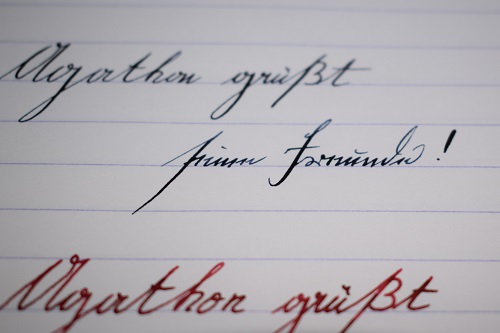 Agathon grüßt
seinen Freunde!
Agathon grüßt